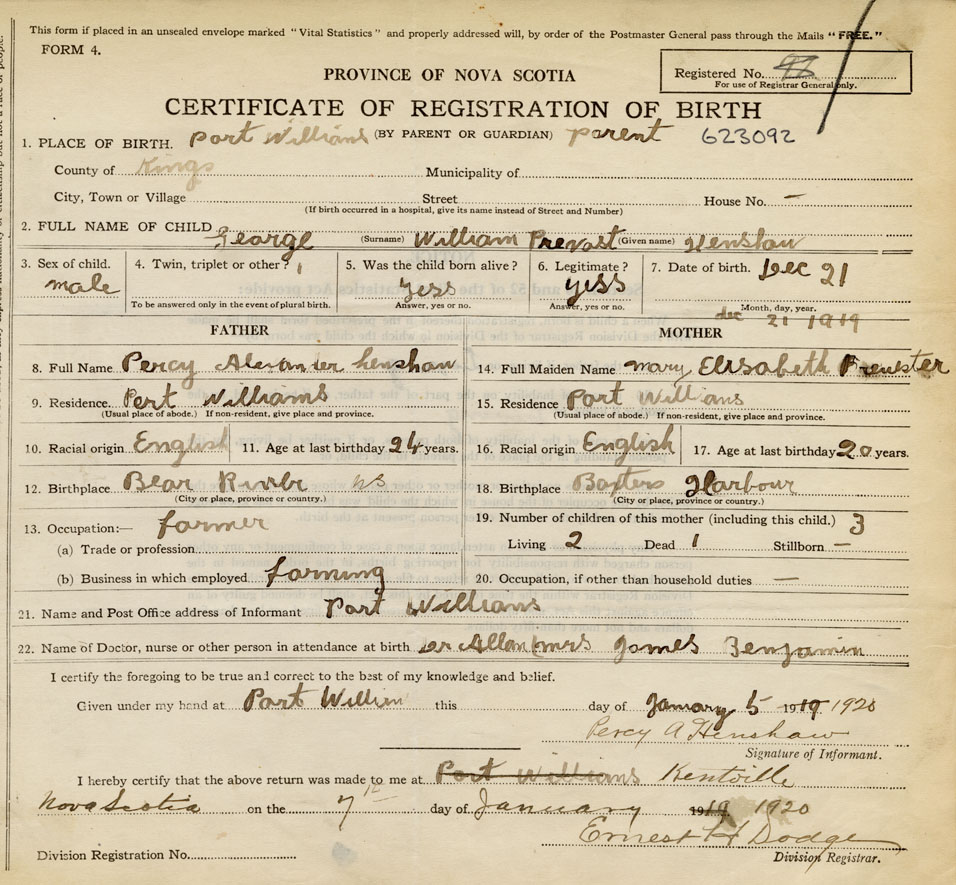 This form if placed in an unsealed envelope marked "Vital Statistics" and properly addressed will, by order of the Postmaster General pass through the Mails "FREE."
FORM 4.
PROVINCE OF NOVA SCOTIA
Registered No.
For use of Registrar General only.
CERTIFICATE OF REGISTRATION OF BIRTH
1. PLACE OF BIRTH. Port Williams (BY PARENT OR GUARDIAN) Parent 623092
County of Kings Municipality of
City, Town or Village Street House No. —
(If birth occurred in a hospital, give its name instead of Street and Number)
2. FULL NAME OF CHILD George (Surname) William Prevost (Given name) Henshaw
3. Sex of child. male 4. Twin, triplet or other? 1 5. Was the child born alive? yess 6. Legitimate? yess 7. Date of birth. Dec 21
To be answered only in the event of plural birth. Answer, yes or no. Answer, yes or no. Month, day, year.
dec 21 1919
FATHER MOTHER
8. Full Name Percy Alexander henshaw 14. Full Maiden Name mary Elisabeth
9. Residence. Port Williams 15. Residence Port Williams
(Usual place of abode.) If non-resident, give place and province. (Usual place of abode.) If non-resident, give place and province.
10. Racial origin English 11. Age at last birthday 24 years. 16. Racial origin English 17. Age at last birthday 20 years.
12. Birthplace Bear NS 18. Birthplace Baxters Harbour
(City or place, province or country.) (City or place, province or country.)
13. Occupation:— farmer 19. Number of children of this mother (including this child.) 3
(a) Trade or profession Living 2 Dead 1 Stillborn —
(b) Business in which employed farming 20. Occupation, if other than household duties —
21. Name and Post Office address of Informant Port Williams
22. Name of Doctor, nurse or other person in attendance at birth Dr Allen (mrs James Benjamin
I certify the foregoing to be true and correct to the best of my knowledge and belief.
Given under my hand at Port William this day of January 5 1919 1920
Percy A Henshaw
Signature of Informant.
I hereby certify that the above return was made to me at Port Williams Kentville
Nova Scotia on the 7th day of January 1919 1920
Ernest H Dodge
Division Registration No. Division Registrar.